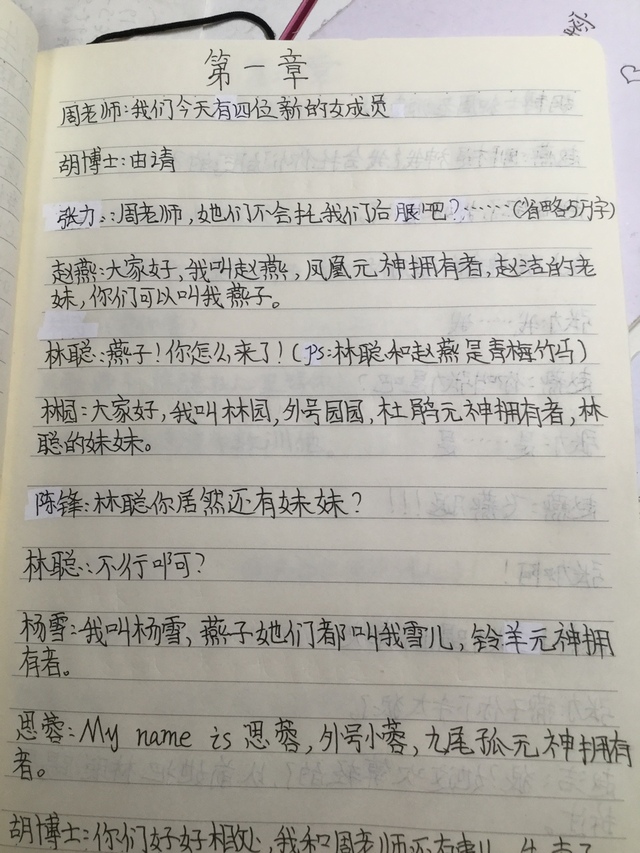 第一章
周老师:我们今天有四位新的女成员
胡博士:由请
张力:周老师,她们不会扯我们后腿吧?……(省略5万字)
赵燕:大家好,我叫赵燕,凤凰元神拥有者,赵洁的老
妹,你们可以叫我燕子。
林聪:燕子!你怎么来了!(ps:林聪和赵燕是青梅竹马)
林园:大家好,我叫林园,外号园园,杜鹃元神拥有者,林
聪的妹妹。
陈锋:林聪你居然还有妹妹?
林聪:不行吗?
杨雪:我叫杨雪,燕子她们都叫我雪儿,铃羊元神拥
有者。
思蓉:My name is 思蓉,外号小蓉,九尾狐元神拥有
者。
胡博士:你们好好相处,我和周老师还有事儿,先走了